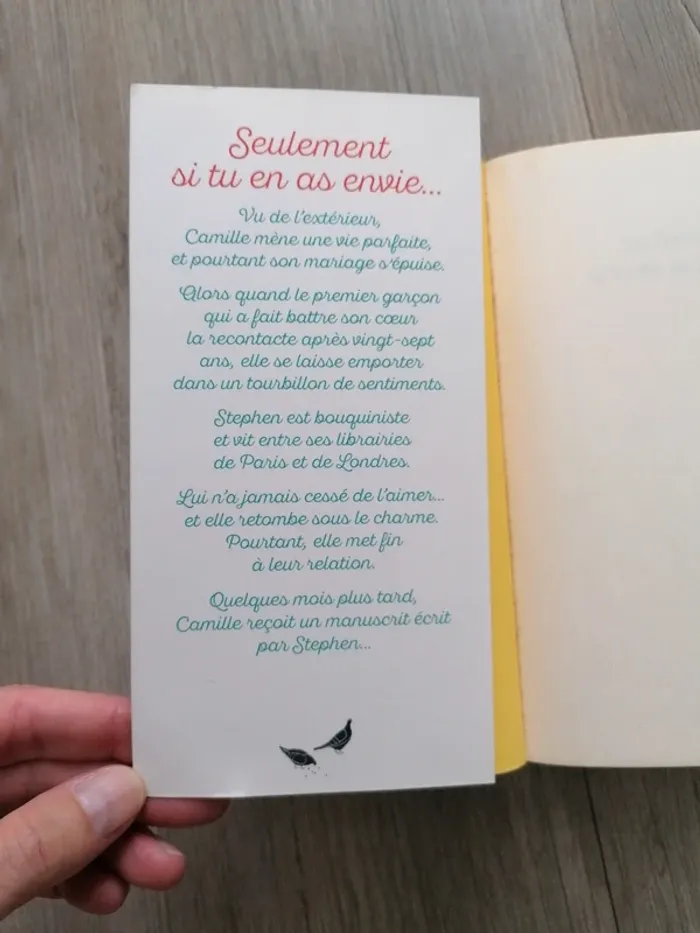 Seulement
si tu en as envie...
Vu de l'extérieur,
Camille mène une vie parfaite,
et pourtant son mariage s'épuise.
Alors quand le premier garçon
qui a fait battre son cœur
la recontacte après vingt-sept
ans, elle se laisse emporter
dans un tourbillon de sentiments.
Stephen est bouquiniste
et vit entre ses librairies
de Paris et de Londres.
Lui n'a jamais cessé de l'aimer...
et elle retombe sous le charme.
Pourtant, elle met fin
à leur relation.
Quelques mois plus tard,
Camille reçoit un manuscrit écrit
par Stephen...